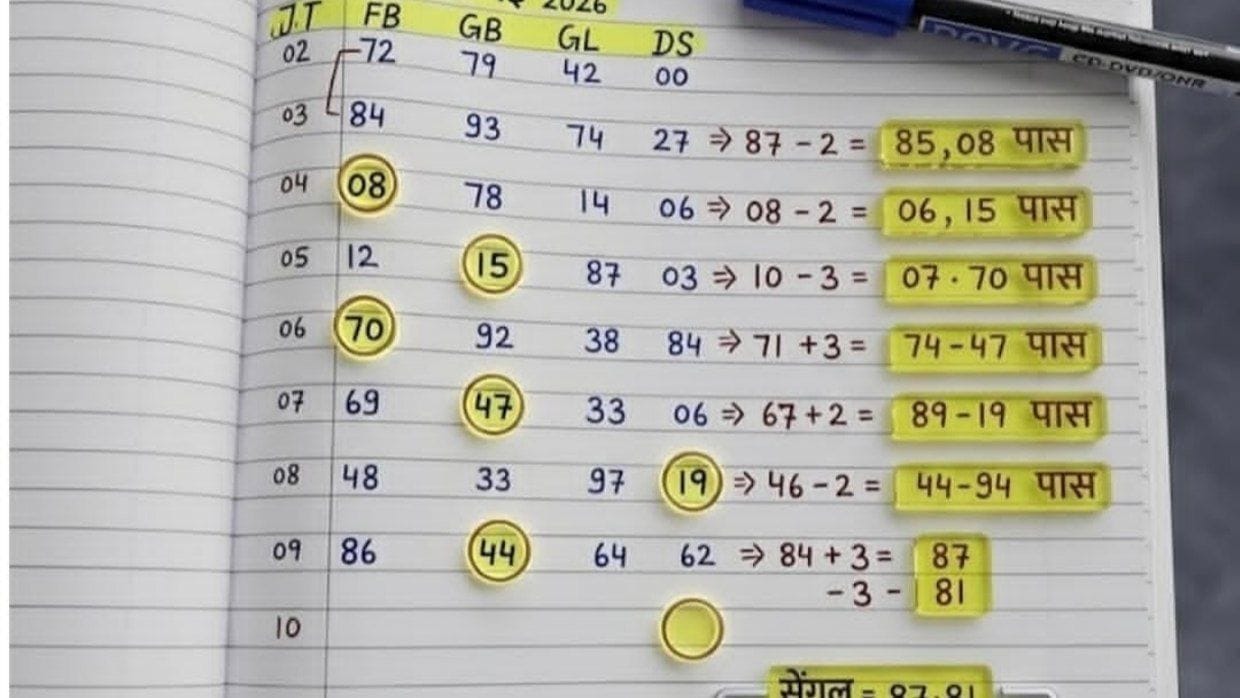 2026
J.T FB GB GL DS
02 72 79 42 00
03 84 93 74 27 ⇒ 87 - 2 = 85,08 पास
04 08 78 14 06 ⇒ 08 - 2 = 06,15 पास
05 12 15 87 03 ⇒ 10 - 3 = 07.70 पास
06 70 92 38 84 ⇒ 71 + 3 = 74-47 पास
07 69 47 33 06 ⇒ 67 + 2 = 89-19 पास
08 48 33 97 19 ⇒ 46 - 2 = 44-94 पास
09 86 44 64 62 ⇒ 84 + 3 = 87
- 3 - 81
10
सेंगल = 87.81
CD-DVD/OHP